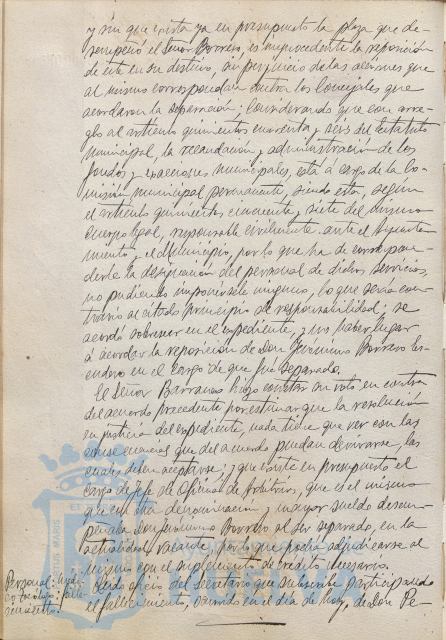 y sin que exista ya en presupuesto la plaza que de-
sempeñó el Señor Borrero, es improcedente la reposición
de este en su destino, sin perjuicio de las acciones que
al mismo correspondan contra los Concejales que
acordaron la separación: Considerando que con arre-
glo al artículo quinientos cuarenta y seis del Estatuto
Municipal, la recaudación y administración de los
fondos y exacciones municipales, está a cargo de la Co-
misión municipal permanente, siendo esta, según
el artículo quinientos cincuenta y siete del mismo
cuerpo legal, responsable civilmente ante el Ayunta-
miento y el Municipio, por lo que ha de correspon-
derle la designación del personal de dichos servicios,
no pudiendo imponérsele ninguno, lo que sería con-
trario al citado principio de responsabilidad: se
acordó sobreseer en el expediente, y no haber lugar
á acordar la reposición de Don Jerónimo Borrero
en el cargo de que fué separado.
El Señor Barranco hizo constar su voto en contra
del acuerdo precedente por estimar que la resolución
en justicia del expediente, nada tiene que ver con las
consecuencias que del acuerdo puedan derivarse, las
cuales deben aceptarse; y que existe en presupuesto el
cargo de Jefe de Oficinas de Arbitrios, que es el mismo
que con otra denominación y mayor sueldo desem-
peñaba Don Jerónimo Borrero al ser separado, en la
actualidad vacante, por lo que podía adjudicarse al
mismo con el suplemento de crédito necesario.
Personal:
Leído oficio del Secretario que suscribe participando
el fallecimiento, ocurrido en el día de hoy, de Don Pe-